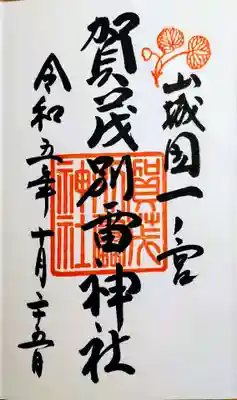 山城国一ノ宮
賀茂別雷神社
令和五年十月二十五日
賀茂別雷神社